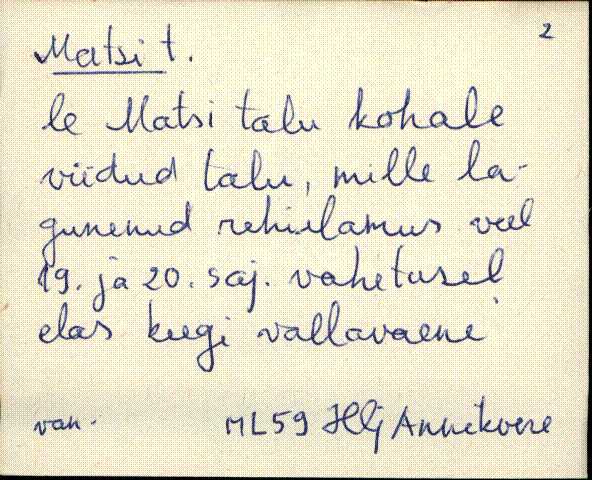 2
Matsi t.
le Matsi talu kohale
viidud talu, mille la-
gunenud rehielamus veel
19. ja 20. saj. vahetusel
elas keegi vallavaene
van. ML59 Hlj Annikvere